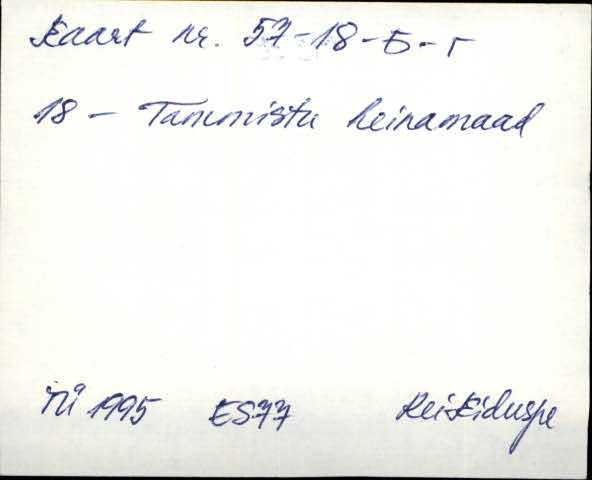 Kaart nr. 57-18-Б-г
18 - Tammistu heinamaad
TÜ 1995 ES77